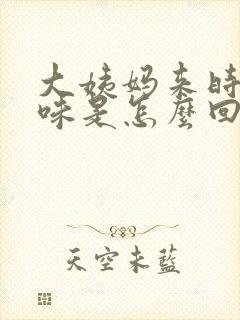 大姨妈来时
味是怎麼回
天空未藍